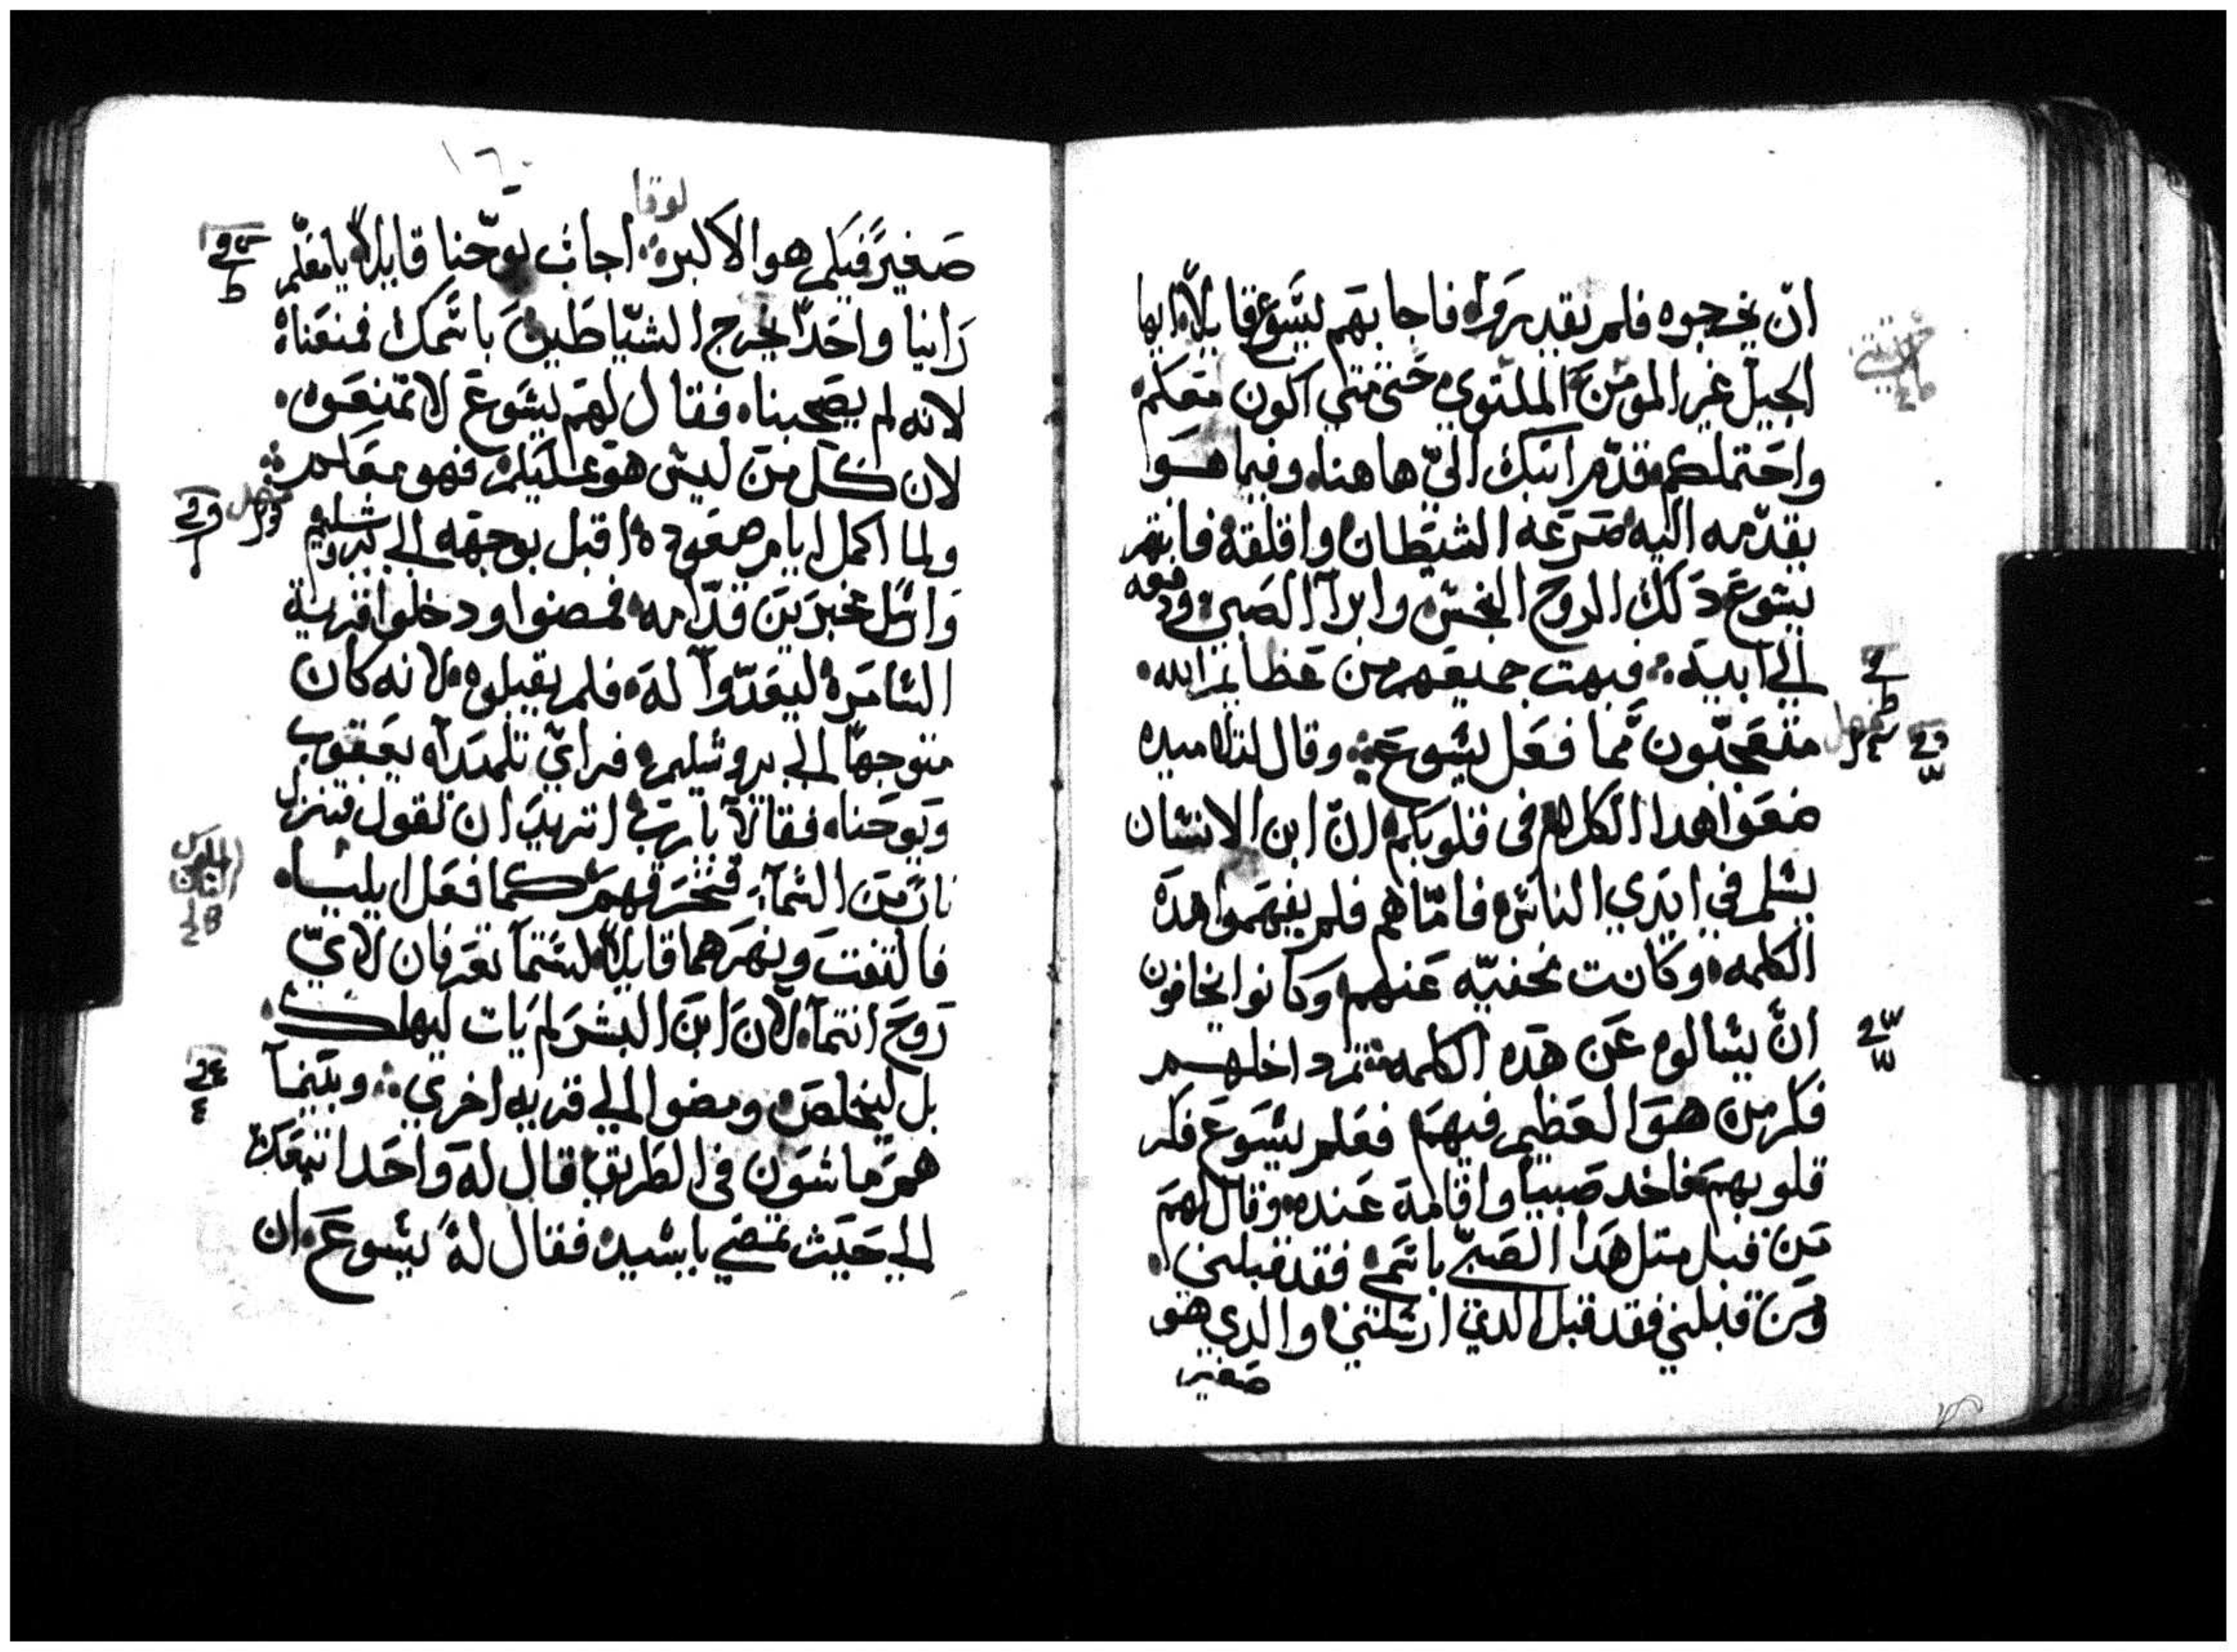 ان يخرجوه فلم يقدروا. فاجابهم يشوع قايلاً. ايها
الجيل غير المومن الملتوي حتى متي اكون معكم
واحتملكم. قدّم ابنك اليّ هاهنا. وفيما هوا
يقدمه اليه صرعه الشيطان واقلقه فانتهر
يشوع دلك الروح النجس. وابرآ الصبي. ودفعه
الي ابيه. فبهت جميعهم من عظايم الله.
متعجّبون مما فعل يشوع. وقال لتلاميده
ضعوا هدا الكلام في قلوبكم. ان ابن الانشان
يشلم في ايدي الناش. فامّا هم فلم يفهموا هده
الكلمه. وكانت مخفيّه عنهم وكانوا يخافون
انّ يشالوه عن هده الكلمه. تم داخلهم
فكر من هوا العظيم فيهم. فعلم يشوع فكر
قلوبهم. فاخد صبياً واقامه عنده. وقال لهم
من قبل متل هدا الصبيّ باشمي فقد قبلني.
ومن قبلني فقد قبل الدي ارشلني. والدي هو
صغير
١٦٠
لوقا
صغيرً فيكم هو الاكبر. اجاب يوحّنا قايلاً يا معلّم
راينا واحداً يخرج الشيّاطين باشمك فمنعناه
لانه لم يصحبنا. فقال لهم يشوع لا تمنعوه.
لان كل من ليش هو عليكم فهو معكم
ولما اكمل ايام صعوده. اقبل بوجهه الي يروشليم
وارشل مخبرين قدّامه. فمضوا ودخلوا قرية
الشامره ليعدّوآ له. فلم يقبلوه. لانه كان
متوجهاً الي يروشليم. فراي تلميداه يعقوب
ويوحنا. فقالا يا ربّ اتريد ان نقول فتنزل
نار من الشمآ. فتحرقهم كما فعل ايليا.
فالتفت ونهرهما قايلاً. لشتما تعرفان لايّ
روح انتما. لان ابن البشر لم يات ليهلك.
بل ليخلص. ومضوا الي قريه اخري. وبينمآ
هم ماشون في الطريق قال له واحد اتبعك
الي حيث تمضي يا شيد. فقال له يشوع. ان